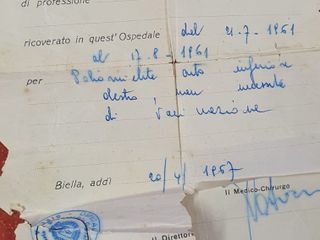 di professione
ricoverato in quest'Ospedale dal 21-7-1961
al 17-8-1961
per Poliomielite arto inferiore
destro non
di
Biella, addì 20/4/1967
Il Medico-Chirurgo
Il Direttore